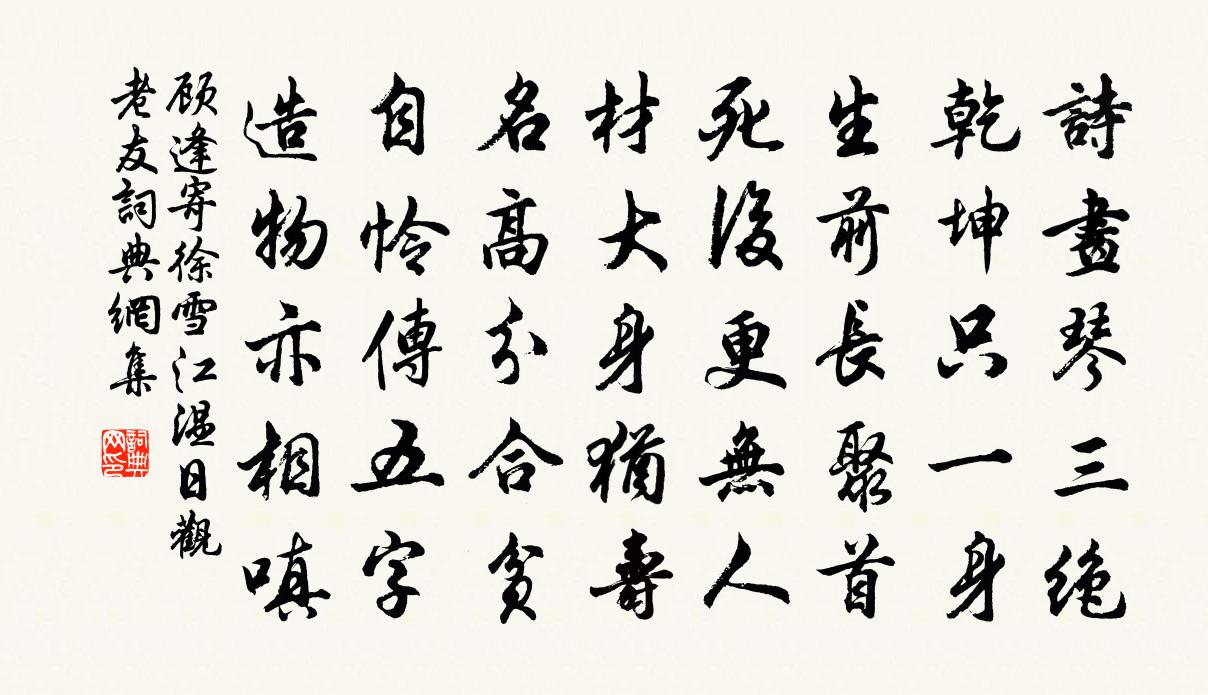 詩畫琴三絶
乾坤只一身
生前長聚首
死後更無人
材大身猶壽
名高分合貧
自怜傳五字
造物亦相嗔
顾逢寄徐雪江温日觀
老友詞典網集
詞典网印